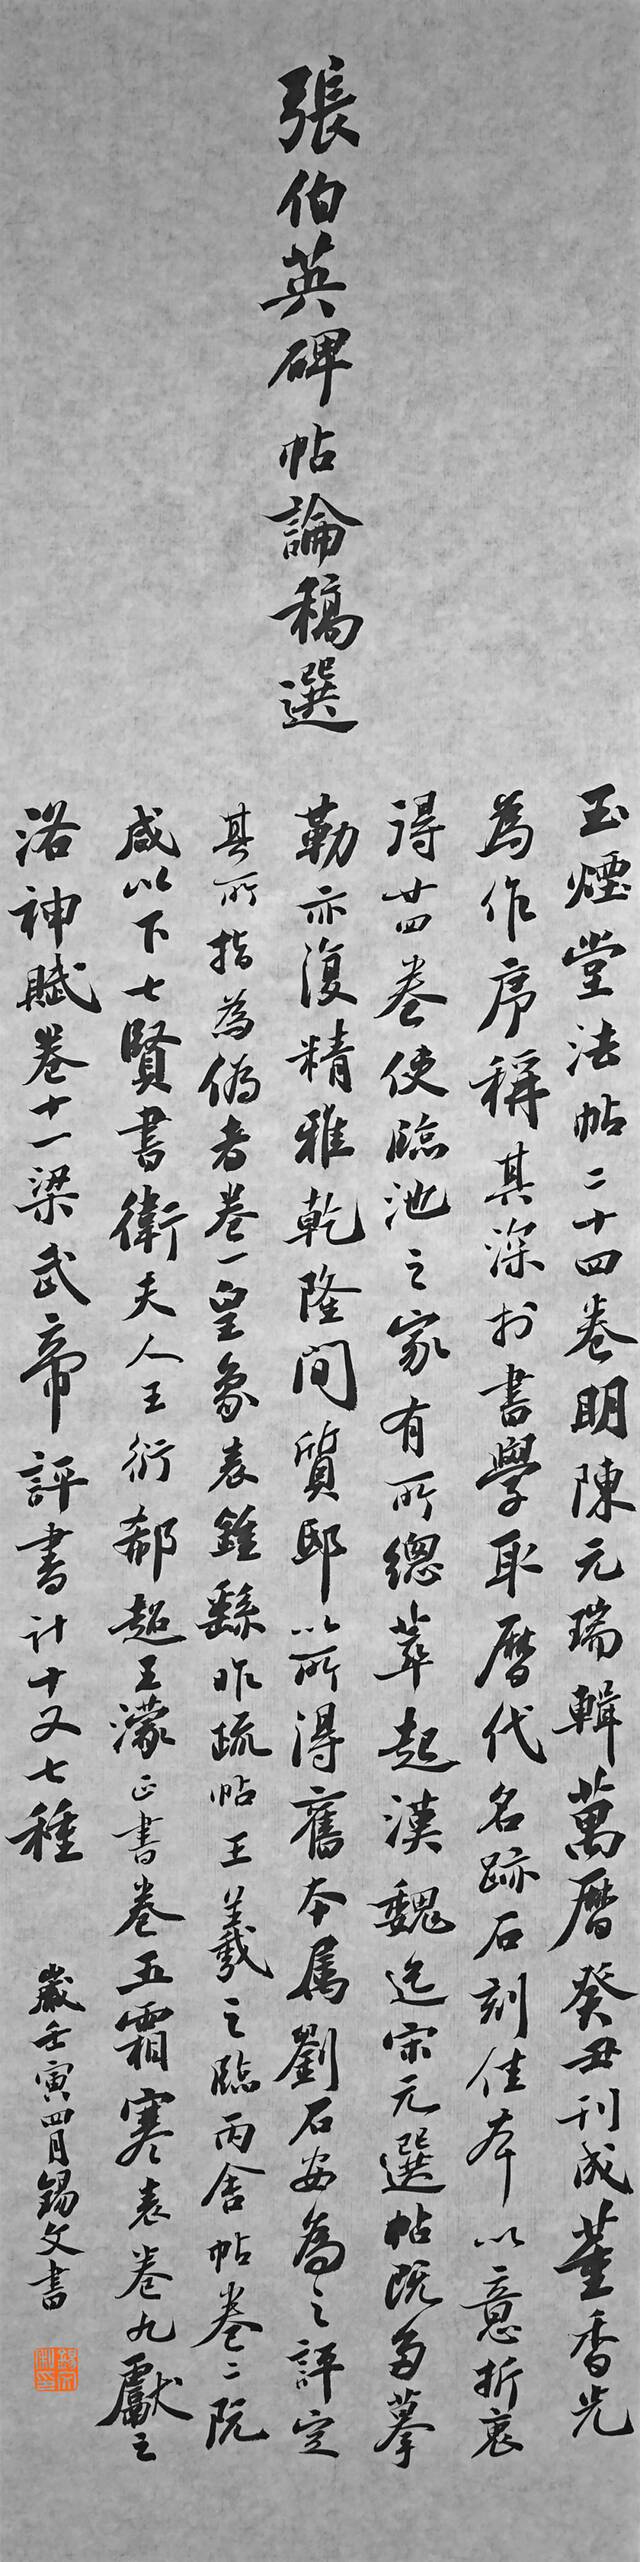 張伯英碑帖論稿選
玉煙堂法帖二十四卷明陳元瑞輯萬曆癸丑刊成董香光
為作序稱其深於書學取曆代名跡石刻佳本以意折衷
得廿四卷使臨池之家有所總萃起漢魏迄宋元選帖既多摹
勒亦復精雅乾隆間質郡以所得舊本屬劉石安為之評定
其所指為偽者卷一皇象表鍾繇昨疏帖王羲之臨丙舍帖卷二阮
咸以下七賢書衛夫人王衍郗超王濛正書卷五霜寒表卷九獻之
洛神賦卷十一梁武帝評書計十又七種
歲壬寅四月錫文書